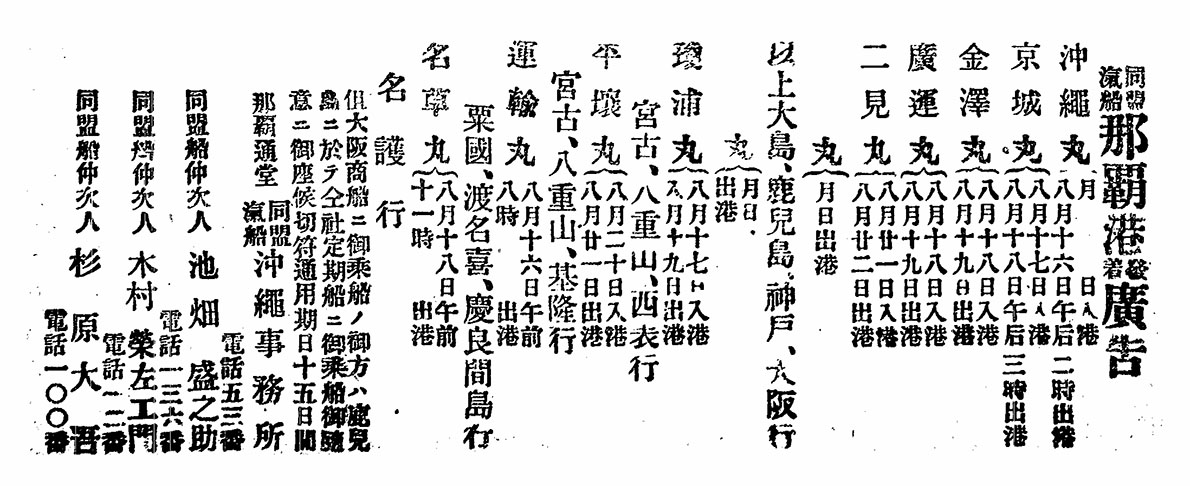 同盟汽船那覇港發着廣告
沖繩丸 月 日入港
八月十六日午后二時出港
京城丸 八月十七日入港
八月十八日午后三時出港
金澤丸 八月十八日入港
八月十九日出港
廣運丸 八月十八日入港
八月十九日出港
二見丸 八月廿一日入港
八月廿二日出港
丸 月日出港
以上大島、鹿兒島、神戸、大阪行
丸 月日
出港
瓊浦丸 八月十七日入港
八月十九日出港
宮古、八重山、西表行
平壤丸 八月二十日入港
八月廿一日出港
宮古、八重山、基隆行
運輸丸 八月十六日午前
八時 出港
粟國、渡名喜、慶良間島行
名草丸 八月十八日午前
十一時 出港
名護行
但大阪商船ニ御乘船ノ御方ハ鹿兒
島ニ於テ仝社定期船ニ御乘船御隨
意ニ御座候切符通用期日十五日間
那覇通堂 同盟汽船沖繩事務所
電話五三番
同盟船仲次人 池畑盛之助
電話一三六番
同盟船仲次人 木村榮左工門
電話一一二番
同盟船仲次人 杉原大吾
電話一〇〇番